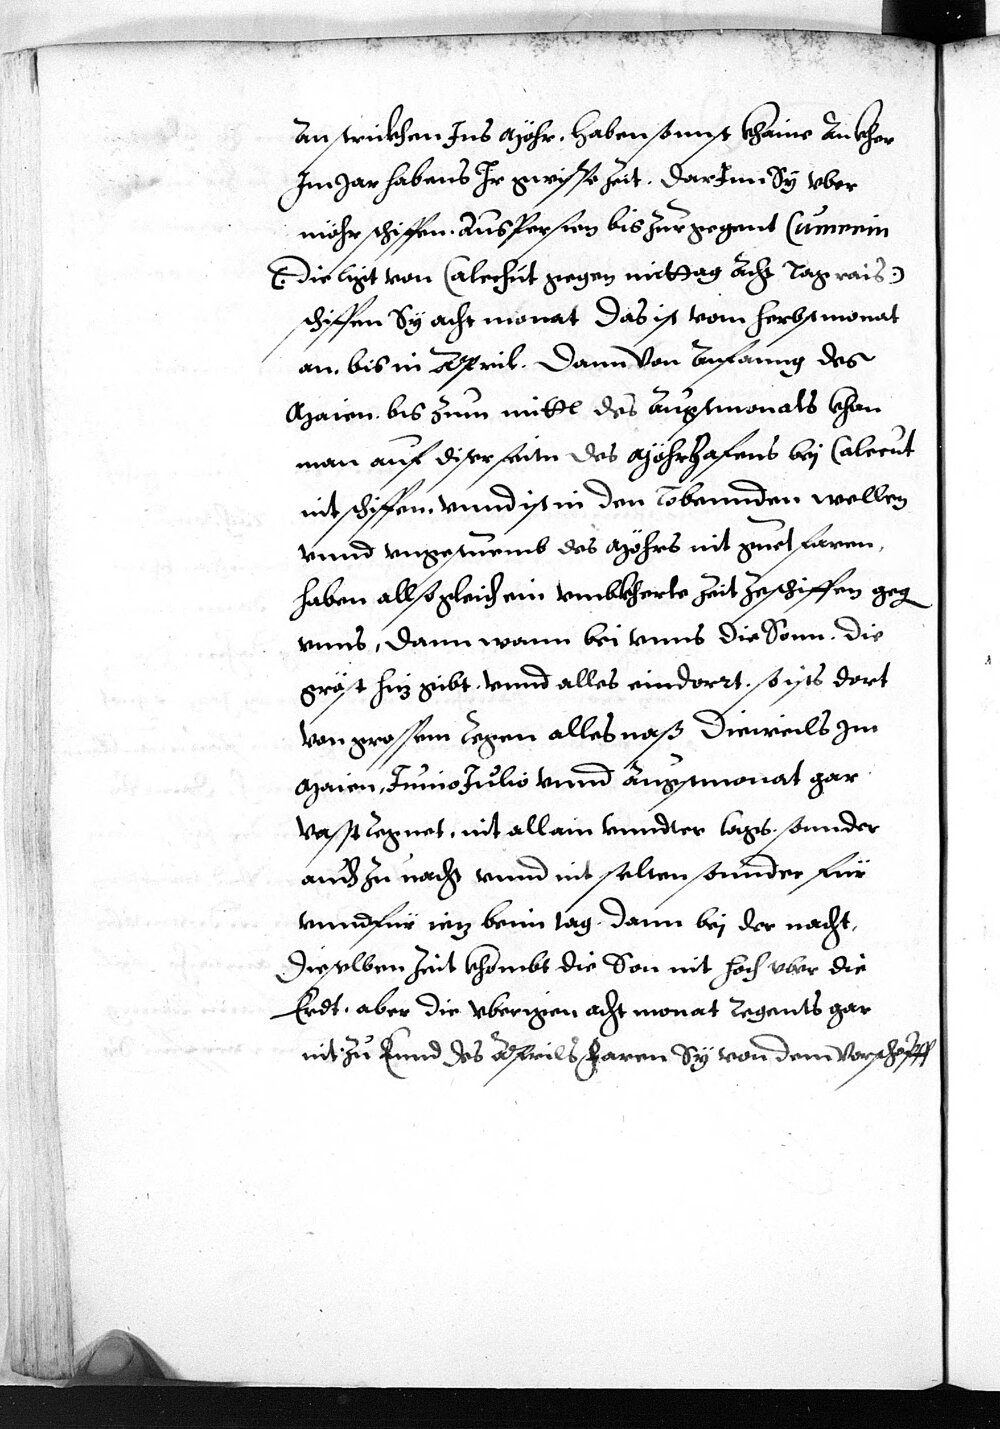 An strickhen Ins Möhr. haben sonnst khaine Ankher
Im Jar habens Ir gwisse Zeit. Dar Inn Sÿ vber
möhr schiffen. Aus Persien bis zur gegent Cumerin
(: Die ligt von Calechut gegen mittag Acht Tag rais :)
schiffen Sÿ acht monat Das ist vom herbstmonat
an. bis in Appril. Dann Von Anfanng des
Maien. bis zum mittl des Augstmonats khan
man auf diser seitn des Möhrhafens bej Calecut
nit schiffen. vnnd ist in den Tobennden wellen
vnnd vngestuemb des Möhrs nit guet faren,
haben allso gleich ein vmbkherte Zeit Zeschiffen geg
vnns, Dann wann bei vnns die Sonn. die
gröst hiz gibt. vnnd alles eindorrt. so ists dort
von grossem Regen alles naß Dieweils Im
Maien, Junio Julio vnnd Augstmonat gar
vasst Regnet. nit allain vnndter tags. sonnder
auch zu nacht vnnd nit selten sonnder für
vnnd für iez beim tag. dann bej der nacht,
Dieselben Zeit khombt die Son nit hoch vber die
Erdt. aber die vberigen acht monat Regents gar
nit. zu Ennd des Apprils faren Sÿ von dem Vorschöpff